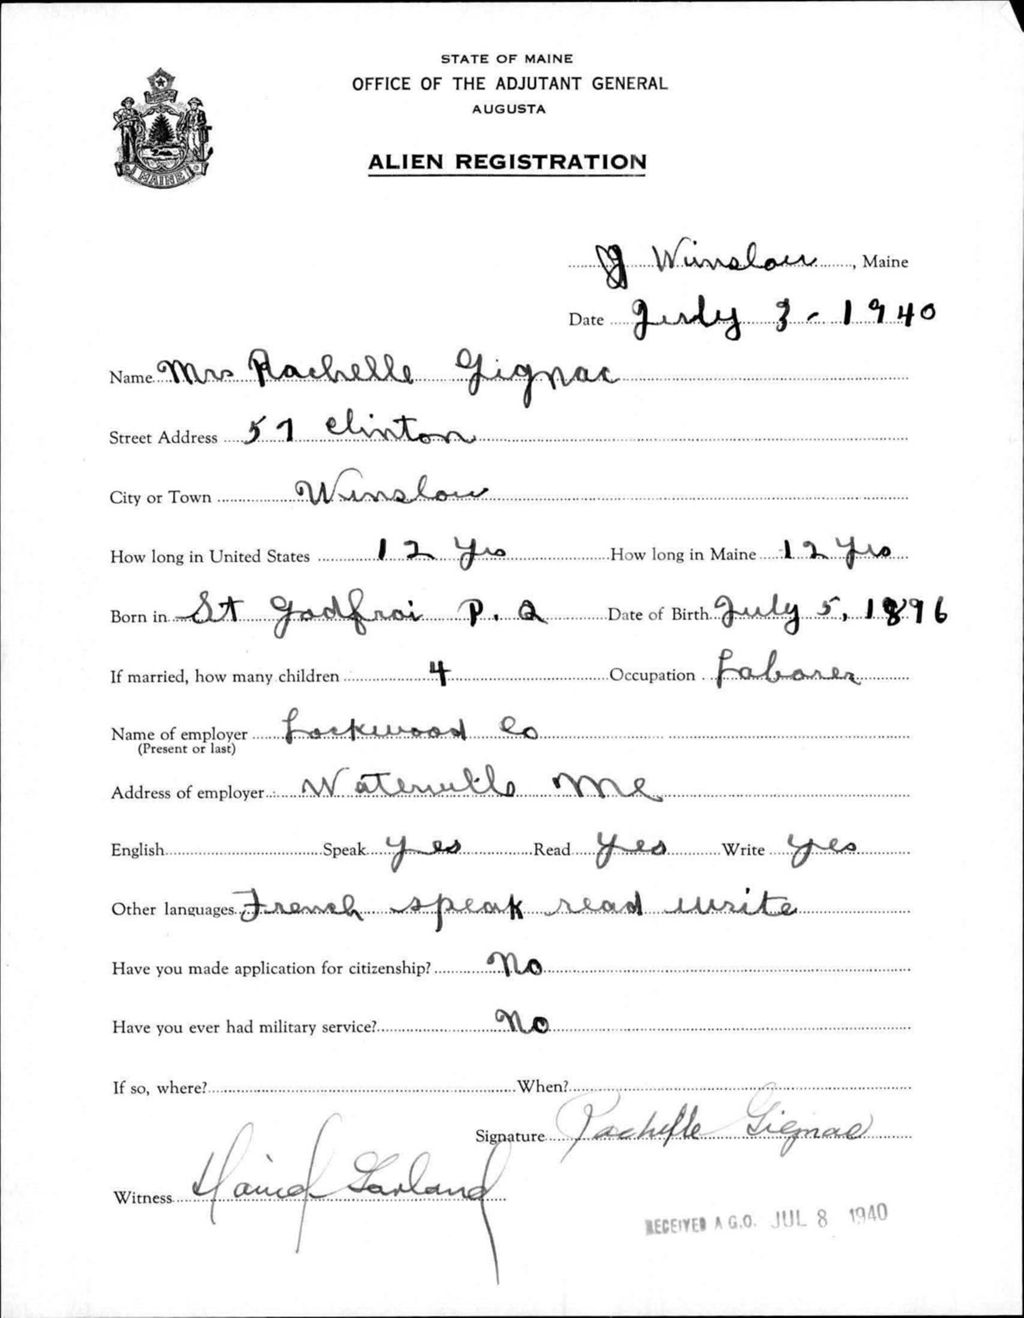 STATE OF MAINE
OFFICE OF THE ADJUTANT GENERAL
AUGUSTA
ALIEN REGISTRATION
MAINE
Winslow, Maine
Date July 3 - 1940
Name Mrs Rachelle Gignac
Street Address 57 Clinton
City or Town Winslow
How long in United States 12 Yrs How long in Maine 12 Yrs
Born in St Godfroi P. Q Date of Birth July 5, 1896
If married, how many children 4 Occupation Laborer
Name of employer Lockwood Co
(Present or last)
Address of employer Waterville Me
English Speak Yes Read Yes Write Yes
Other languages French speak read write
Have you made application for citizenship? No
Have you ever had military service? No
If so, where? When?
Signature Rachelle Gignac
Witness Garland
RECEIVED A.G.O. JUL 8 1940